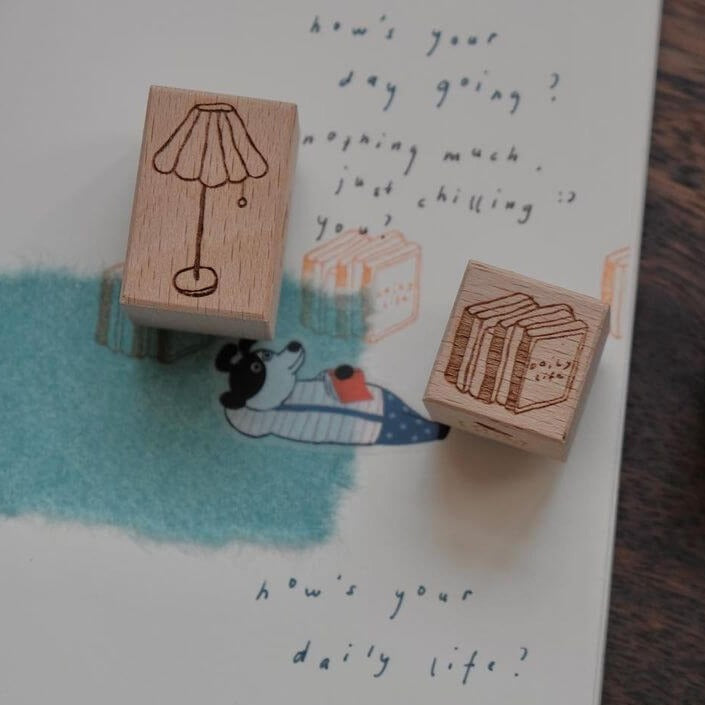 how's your
day going?
nothing much.
just chilling :)
you?
daily
life
daily
life
how's your
daily life?